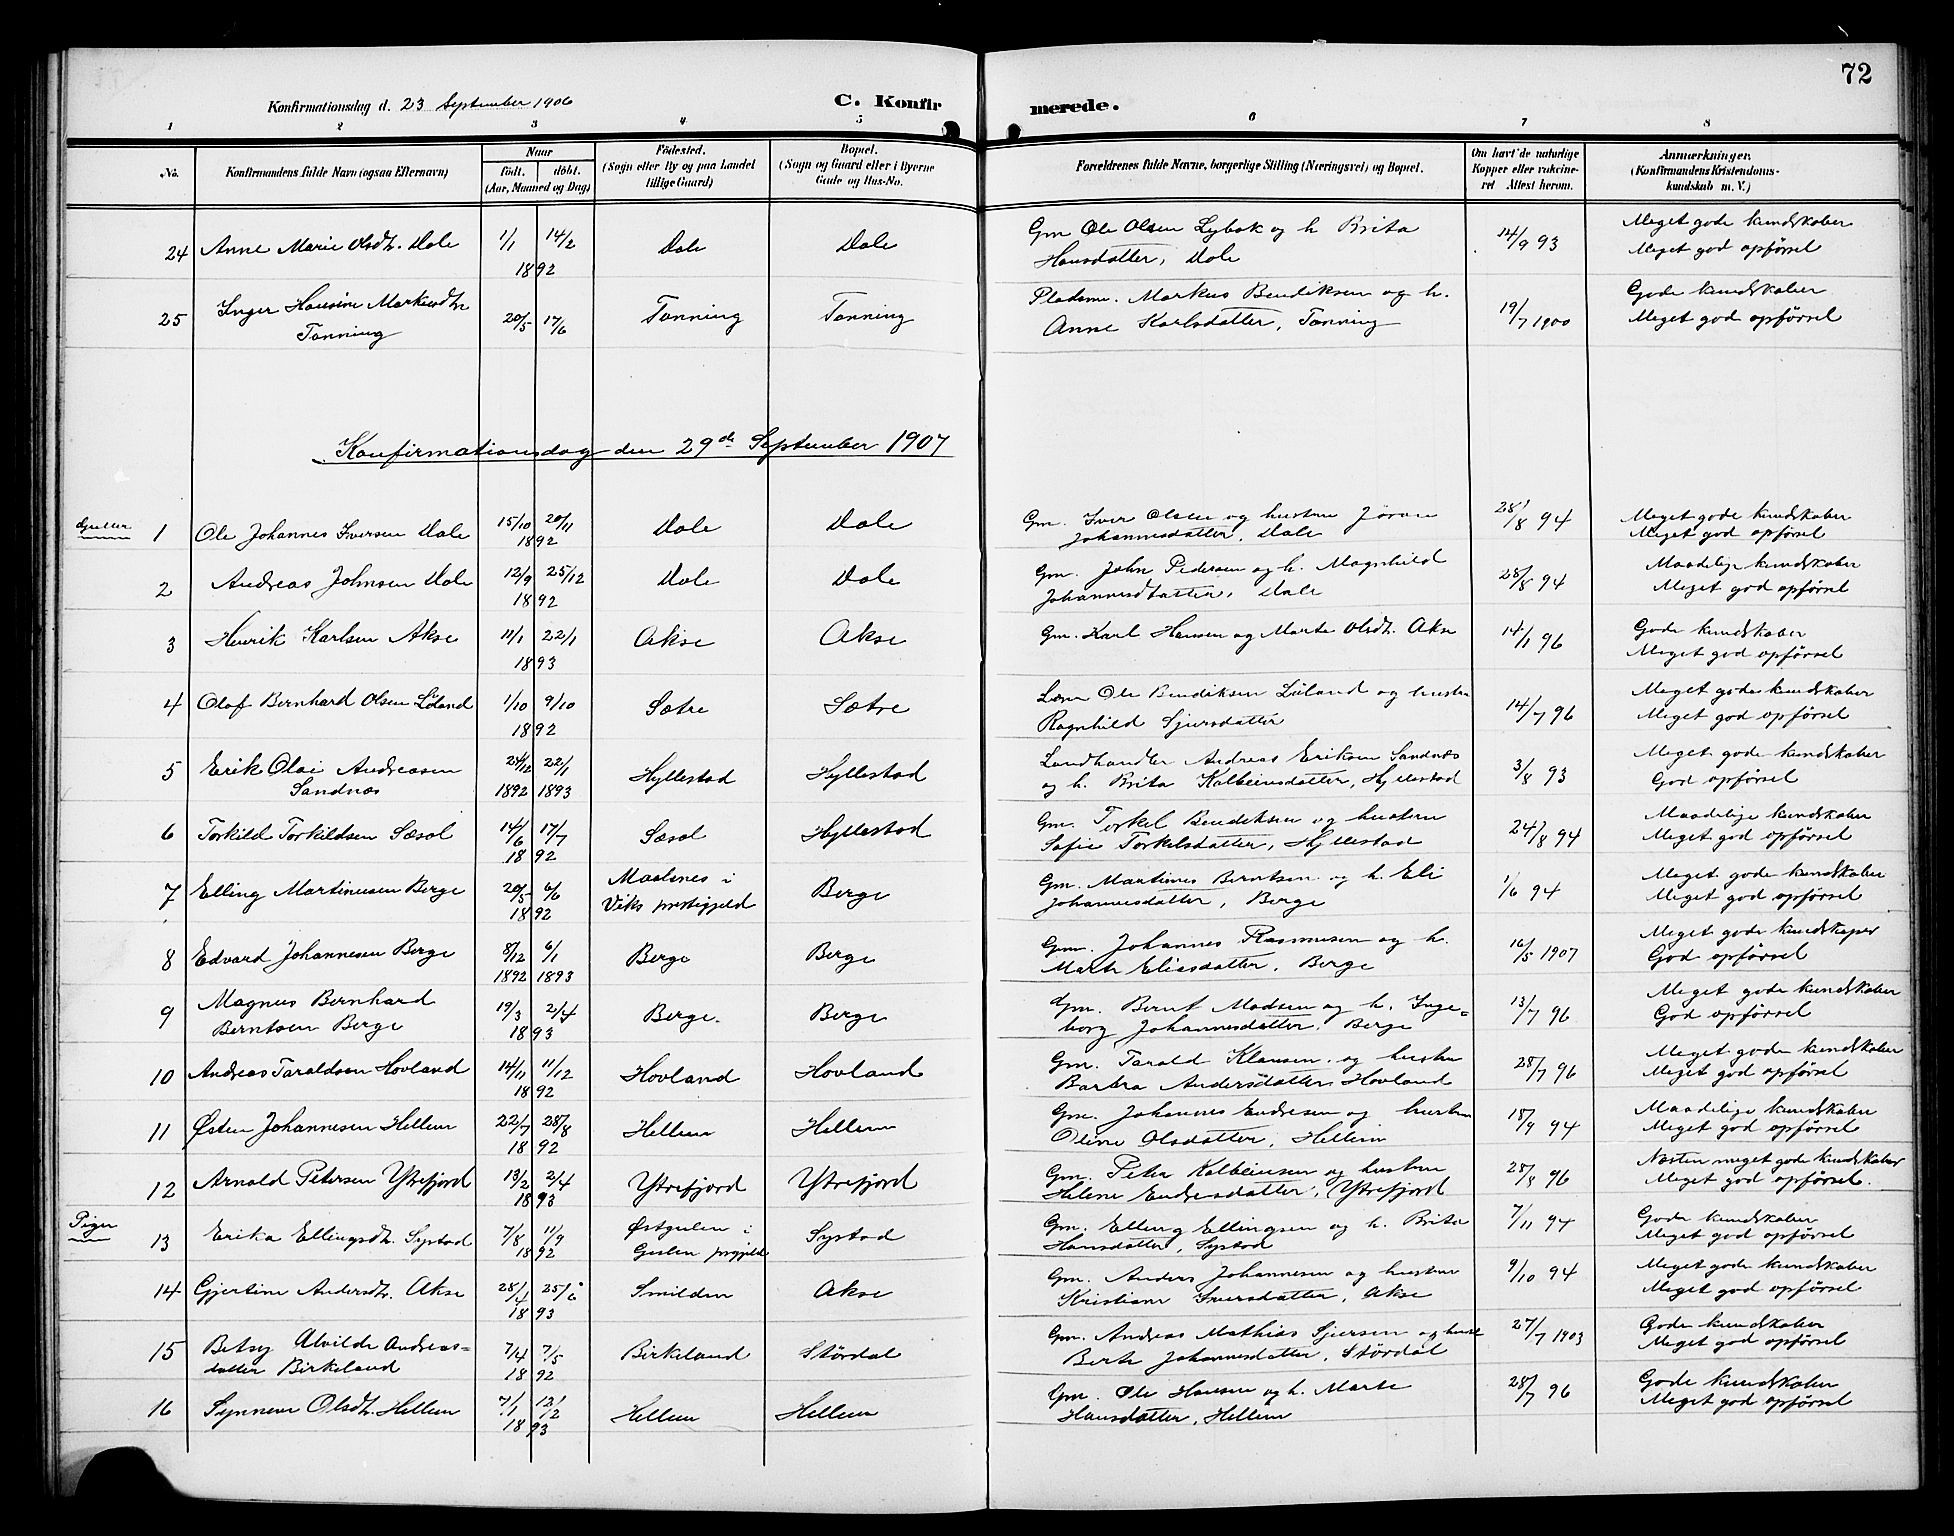 72
Konfirmationsdag d. 23 September 1906
C. Konfirmerede.
1 2 3 4 5 6 7 8
No. Konfirmandens fulde Navn (ogsaa Efternavn) Naar født. døbt. (Aar, Maaned og Dag) Fødested. (Sogn eller By og paa Landet tillige Gaard) Bopæl. (Sogn og Gaard eller i Byerne Gade og Hus-No. Forældrenes fulde Navne, borgerlige Stilling (Næringsvei) og Bopæl. Om havt de naturlige Kopper eller vakcineret Attest herom. Anmærkninger. (Konfirmandens Kristendomskundskab m. V.)
24 Anne Marie Olsdtr. Dale 1/1 14/2 1892 Dale Dale Gm Ole Olsen Lybek og h Brita Hansdatter, Dale 14/9 93 Meget gode kundskaber Meget god opførsel
25 Inger Hansine Markusdtr Tønning 20/5 17/6 Tønning Tønning Pladsm. Markus Bendiksen og h. Anne Karlsdatter, Tønning 19/7 1900 Gode kundskaber Meget god opførsel
Konfirmationsdag den 29de September 1907
Gutter
1 Ole Johannes Iversen Dale 15/10 20/11 1892 Dale Dale Gm. Iver Olsen og hustru Jøran Johannesdatter, Dale 28/8 94 Meget gode kundskaber Meget god opførsel
2 Andreas Johnsen Dale 12/9 25/12 1892 Dale Dale Gm. John Pedersen og h. Magnhild Johannesdtatter, Dale 28/8 94 Maadelige kundskaber Meget god opførsel
3 Henrik Karlsen Akse 11/1 22/1 1893 Akse Akse Gm. Karl Hansen og Marta Olsdtr. Akse 14/1 96 Gode kundskaber Meget god opførsel
4 Olaf Bernhard Olsen Løland 1/10 9/10 1892 Sætre Sætre Ole Bendiksen Løland og hustru Ragnhild Sjursdatter 14/7 96 Meget gode kundskaber Meget god opførsel
5 Erik Olai Andreasen Sandnæs 24/12 22/1 1892 1893 Hyllestad Hyllestad Landhandler Andreas Eriksen Sandnæs og h. Brita Kolbeinsdatter, Hyllestad 3/8 93 Meget gode kundskaber God opførsel
6 Torkild Torkildsen Sæsol 14/6 17/7 1892 Sæsol Hyllestad Gm. Torkel Bendiksen og hustru Sofie Torkelsdatter, Hyllestad 24/8 94 Maadelige kundskaber Meget god opførsel
7 Elling Martinusen Berge 20/5 6/6 1892 Maalsnes i Viks prestigjeld Berge Gm. Martines Berntsen og h. Eli Johannesdatter, Berge 1/6 94 Meget gode kundskaber Meget god opførsel
8 Edvard Johannesen Berge 8/12 6/1 1892 1893 Berge Berge Gm. Johannes Rasmusen og h. Marte Eliasdatter, Berge 16/5 1907 Meget gode kundskaper God opførsel
9 Magnus Bernhard Berntsen Berge 19/3 2/4 1893 Berge. Berge Gm. Bernt Madsen og h. Ingeborg Johannesdatter, Berge 13/7 96 Meget gode kundskaber God opførsel
10 Andreas Taraldsen Hovland 14/11 11/12 1892 Hovland Hovland Gm. Tarald Klausen og hustru Barbra Andersdatter Hovland 28/7 96 Meget gode kundskaber Meget god opførsel
11 Østen Johannesen Hellem 22/7 28/8 1892 Hellem Hellem Gm. Johannes Endresen og hustru Oline Olsdatter, Hellem 18/9 94 Maadelige kundskaber Meget god opførsel
12 Arnold Petersen Ytrefjord 13/2 2/4 1893 Ytrefjord Ytrefjord Gm. Peter Kolbeinsen og hustru Helene Endresdatter, Ytrefjord 28/8 96 Næsten meget gode kundskaber Meget god opførsel.
Piger
13 Erika Ellingsdtr. Systad 7/8 11/9 1892 Østgulen i Gulen prgjeld Systad Gm. Elling Ellingsen og h. Brita Hansdatter, Systad 7/11 94 Gode kundskaber Meget god opførsel
14 Gjertine Andersdtr. Akse 28/4 25/6 1893 Smilden Akse Gm. Anders Johannesen og hustru Kristiane Iversdatter, Akse 9/10 94 Meget gode kundskaber Meget god opførsel
15 Betsy Alvilde Andreasdatter Birkeland 7/4 7/5 1892 Birkeland Størdal Gm. Andreas Mathias Sjursen og hust Berte Johannesdatter, Størdal 27/7 1903 Gode kundskaber Meget god opførsel
16 Synneve Olsdtr. Hellem 7/1 12/2 1893 Hellem Hellem Gm. Ole Hansen og h. Marte Hansdatter, Hellem 28/7 96 Gode kundskaber Meget god opførsel